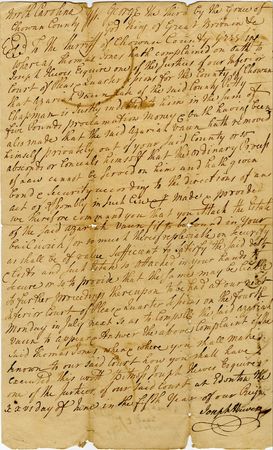 North Carolina
Chowan County
George the third by the Grace of
God &c King of Great
To the Sheriff of Chowan County Greeting
Whereas Thomas Jones hath complained on oath to
Joseph Hewes Esquire one of the Justices of our Inferior
Court of Pleas & Quarter Sessions for the County of Chowan
that Azariah Vann late of the said County
Chapman is justly indebted to him in the Sum of
five pounds proclamation Money & Oath having been
also made that the said Azariah Vann hath removed
himself privately out of your said County or so
absconds or Conceals himself that the ordinary Process
of Law cannot be served on him and hath given
bond & Security according to the directions of an
Act of Assembly in such Case made & provided
We therefore command you that you attach the Estate
of the said Azariah Vann if to be found in your
Bailiwick or so much thereof repleviable on Security
as shall be of value sufficient to satisfy the said debt
& Costs and such Estate so attached in your hands to
secure or so to provide that the same may be liable
to further Proceedings thereupon to be had at our next
Inferior Court of Pleas & Quarter Sessions on the fourth
Monday in July next so as to Compell the said Azariah
Vann to appear & Answer the above Complaint of the
said Thomas Jones when & where you shall make
known to our said Court how you shall have
executed this writ Witness Joseph Hewes Esquire
one of the Justices of our said Court at Edenton the
day of June in the fifth Year of our Reign
Joseph Hewes